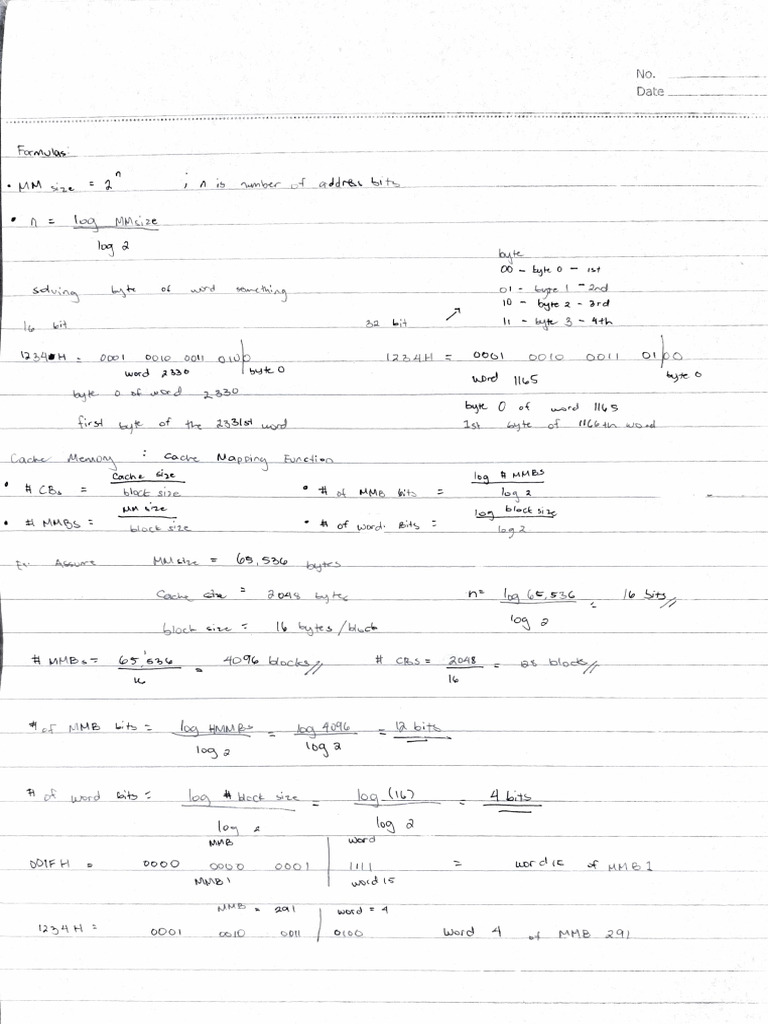 No.
Date
Formulas:
• MM size = 2^n ; n is number of address bits
• n = log MMsize / log 2
byte
00 - byte 0 - 1st
solving byte of word something 01 - byte 1 - 2nd
10 - byte 2 - 3rd
16 bit 32 bit ↗ 11 - byte 3 - 4th
1234H = 0001 0010 0011 010|0 1234H = 0001 0010 0011 01|00
word 2330 byte 0 word 1165 byte 0
byte 0 of word 2330 byte 0 of word 1165
first byte of the 2331st word 1st byte of 1166th word
Cache Memory : Cache Mapping Function
• # CBs = cache size / block size • # of MMB bits = log # MMBs / log 2
• # MMBS = MM size / block size • # of word. Bits = log block size / log 2
Ex: Assume MMsize = 65,536 bytes
Cache size = 2048 bytes n = log 65,536 / log 2 = 16 bits//
block size = 16 bytes/block
# MMBs = 65,536 / 16 = 4096 blocks// # CBs = 2048 / 16 = 128 blocks//
# of MMB bits = log #MMBs / log 2 = log 4096 / log 2 = 12 bits
# of word bits = log # block size / log 2 = log (16) / log 2 = 4 bits
MMB | word
001F H = 0000 0000 0001 | 1111 = word 15 of MMB 1
MMB 1 word 15
MMB = 291 | word = 4
1234 H = 0001 0010 0011 | 0100 word 4 of MMB 291